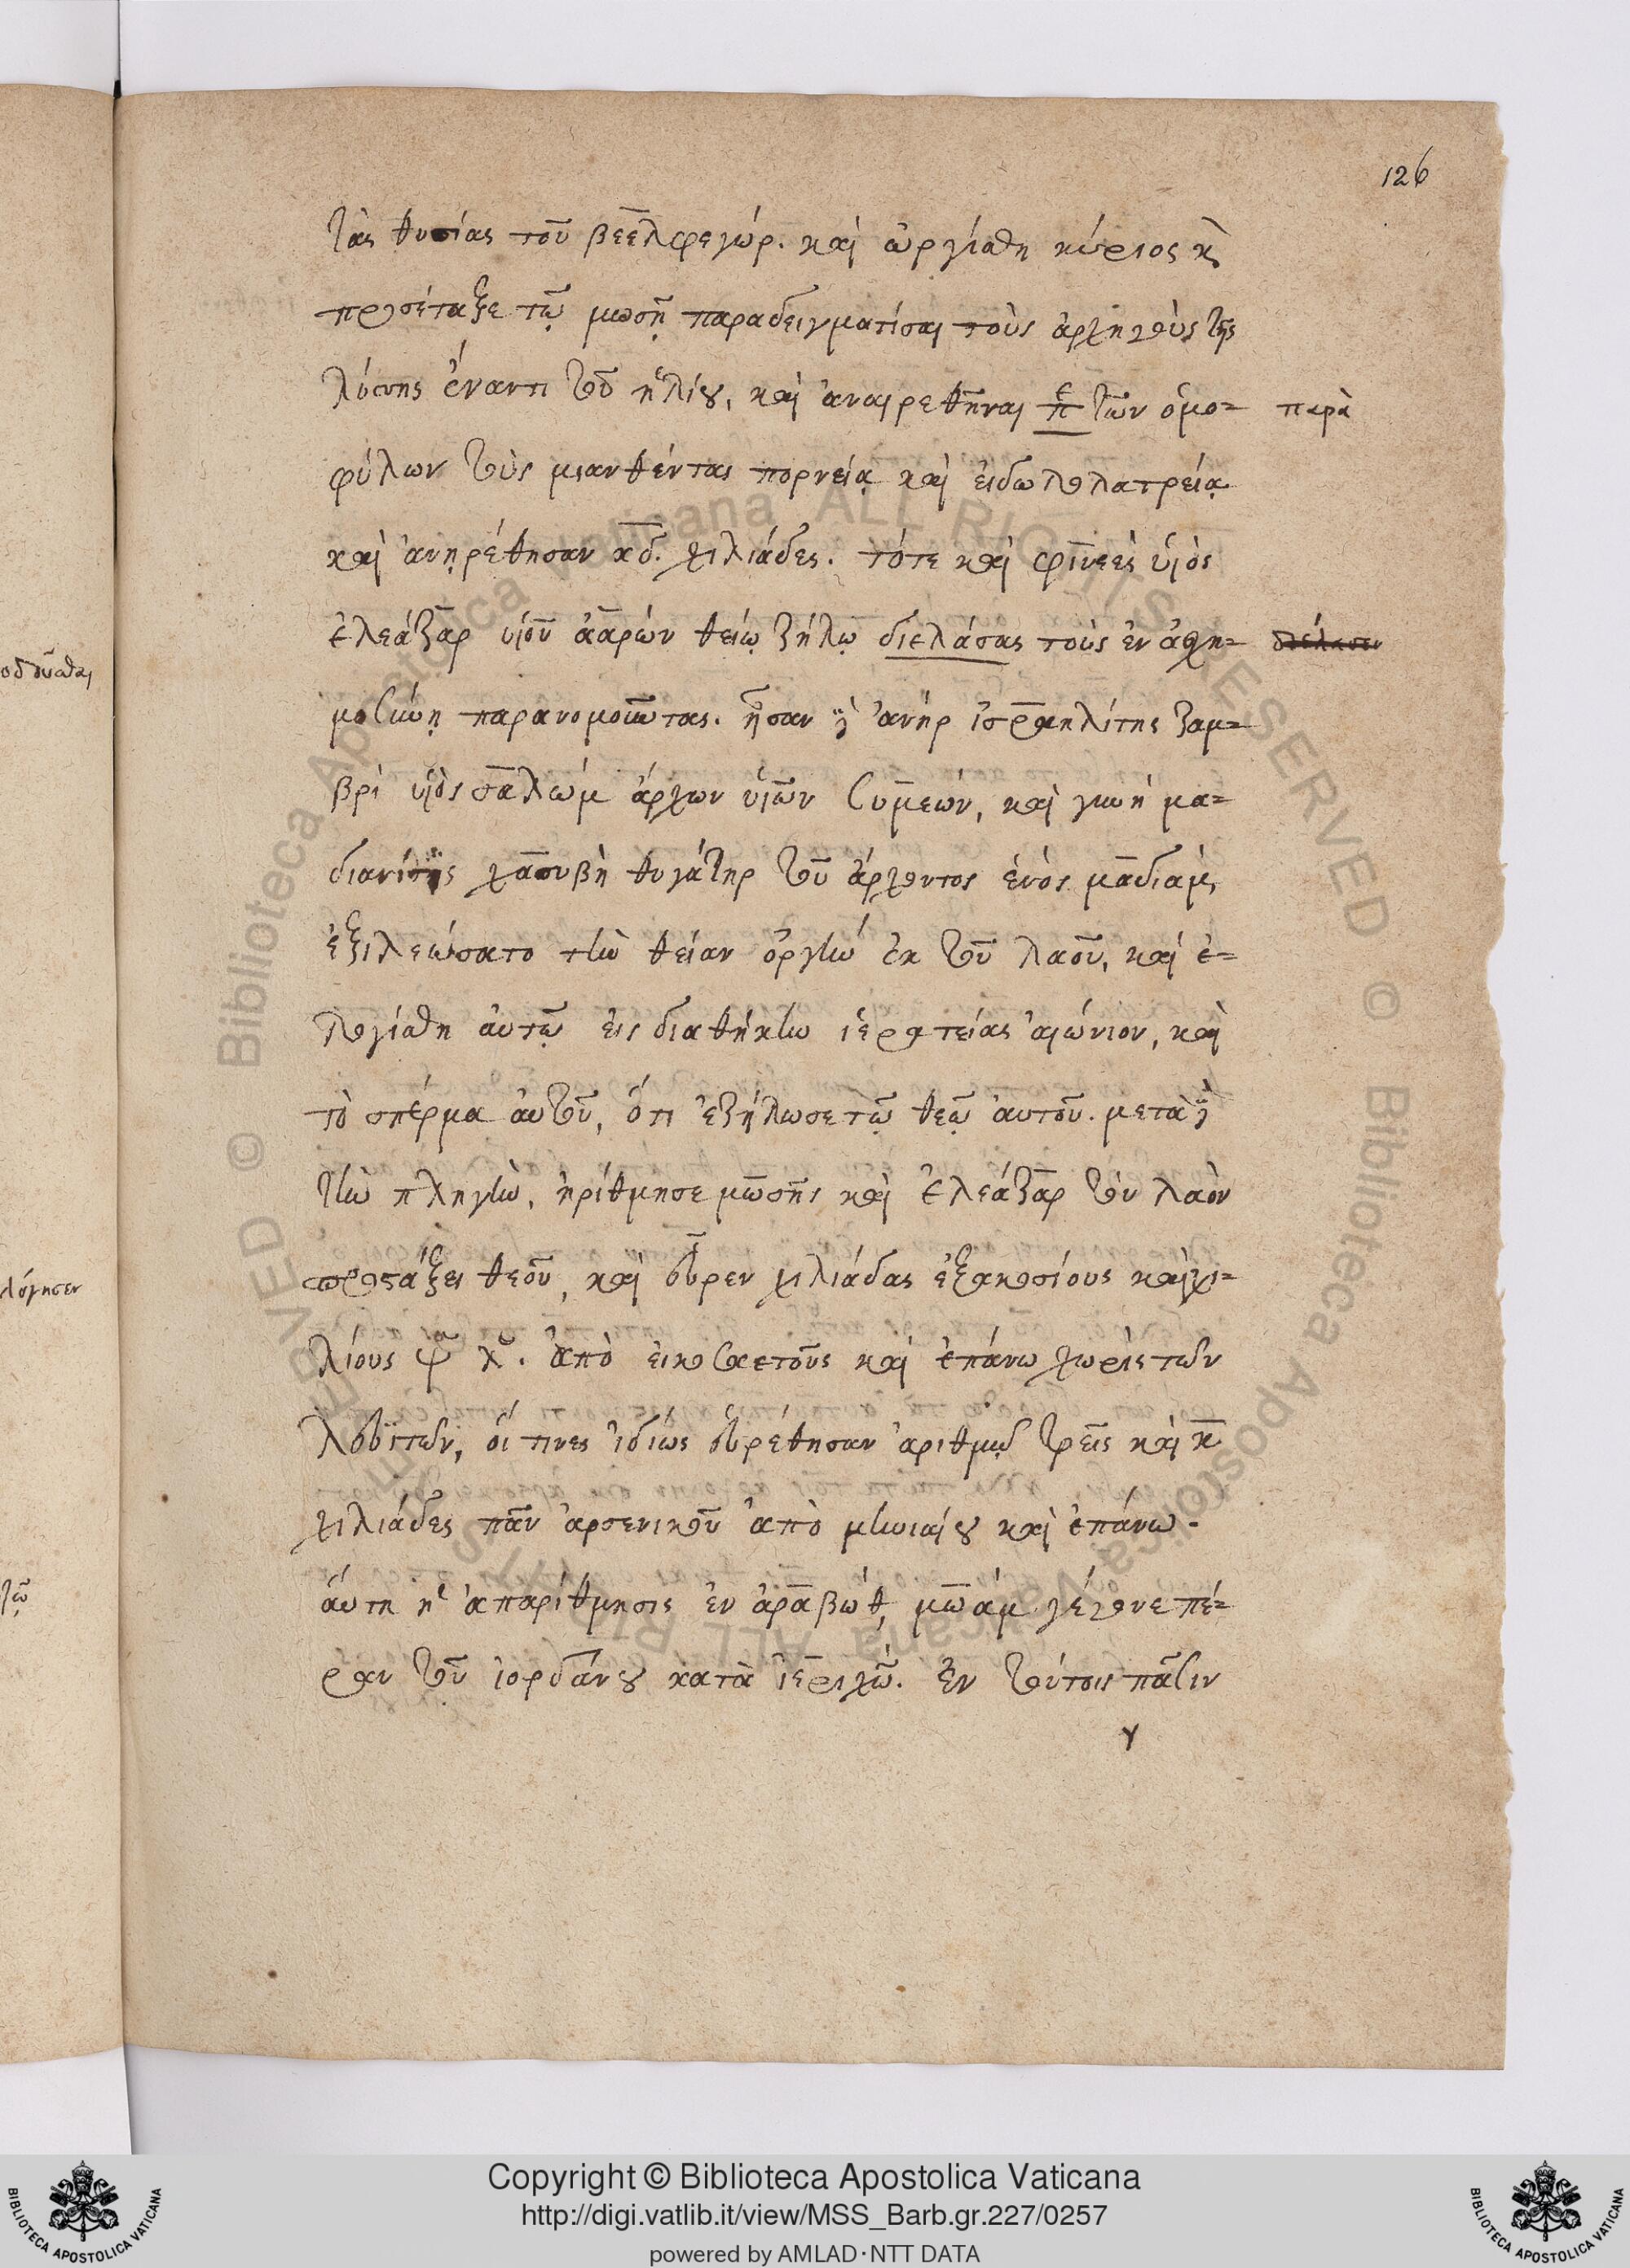 126
τὰς θυσίας τοῦ βεελφεγώρ. καὶ ὠργίσθη κύριος κ̀
προσέταξε τῷ μωσῇ παραδειγματίσαι τοὺς ἀρχηγοὺς τῆς
λύσσης ἔναντι τοῦ ἡλίου, καὶ ἀναιρεθῆναι π̅ τῶν ὁμο=
παρὰ
φύλων τοὺς μιανθέντας πορνείᾳ καὶ εἰδωλολατρείᾳ
καὶ ἀνῃρέθησαν κδ. χιλιάδες. τότε καὶ φινεὲς υἱὸς
ἐλεάζαρ υἱοῦ ἀαρών θείῳ ζήλῳ διελάσας τοὺς ἐν ἀσχη=
διέλασεν
μοσύνῃ παρανομοῦντας. ἦσαν δὲ ἀνήρ ἰσραηλίτης ζαμ=
βρὶ υἱὸς σαλώμ ἄρχων υἱῶν συμεών, καὶ γυνή μα=
διανίτης χασυβὴ θυγάτηρ τοῦ ἄρχοντος ἑνός μαδιάμ,
ἐξιλεώσατο τὴν θείαν ὀργήν ἐκ τοῦ λαοῦ, καὶ ἐ=
λογίσθη ἀυτῷ εἰς διαθήκην ἱερατείας αἰώνιον, καὶ
τὸ σπέρμα ἀυτοῦ, ὅτι ἐζήλωσε τῷ θεῷ ἀυτοῦ. μετὰ δὲ
τὴν πληγὴν, ἠρίθμησε μωσῆς καὶ ἐλεάζαρ τὸν λαὸν
προστάξει θεοῦ, καὶ εὗρεν χιλιάδας ἑξακοσίους καὶ χι=
λίους ψ λ. ἀπὸ εἰκοσαετοῦς καὶ ἐπάνω χωρὶς τῶν
λευϊτῶν, οἵ τινες ἰδίως εὑρέθησαν ἀριθμῷ τρεῖς καὶ κ
χιλιάδες πᾶν ἀρσενικοῦ ἀπὸ μηνιαίου καὶ ἐπάνω.
ἅυτη ἡ ἀπαρίθμησις ἐν ἀραβώθ, μωάμ γέγονε πέ=
ραν τοῦ ἰορδάνου κατὰ ἰεριχῶ. ἐν τούτοις πᾶσιν
γ
λόγησεν
τῷ
Copyright © Biblioteca Apostolica Vaticana
http://digi.vatlib.it/view/MSS_Barb.gr.227/0257
powered by AMLAD·NTT DATA
BIBLIOTECA APOSTOLICA VATICANA
BIBLIOTECA APOSTOLICA VATICANA